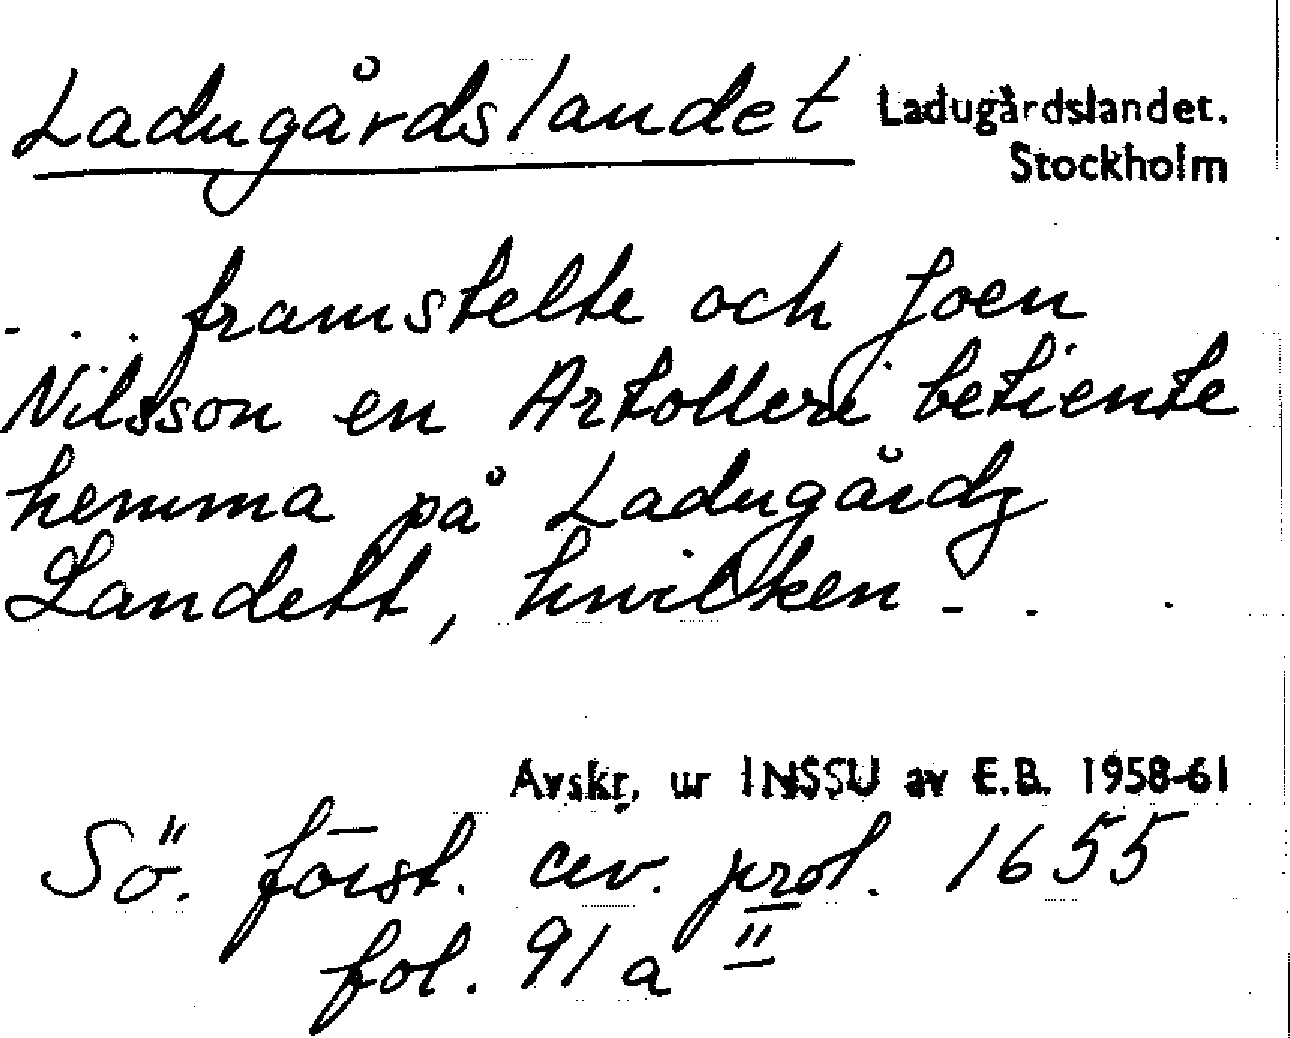 Ladugårdslandet Ladugårdslandet.
Stockholm
... framstelte och Joen
Nilsson en Artolleri betiente
hemma på Ladugårdz
Landett, hwilken ...
Avskr. ur INSSU av E.B. 1958-61
Sö. först. civ. prot. 1655
fol. 91 a II